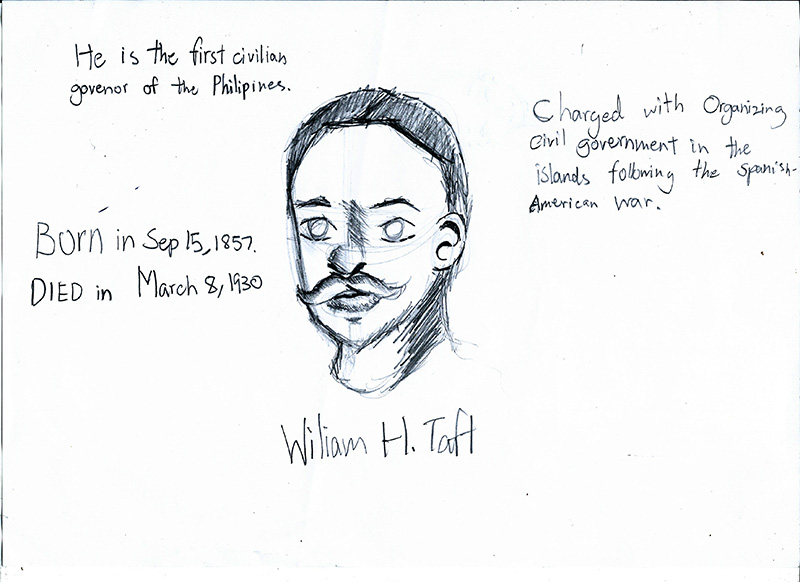 He is the first civilian
govenor of the Philipines.
Charged with Organizing
Civil government in the
islands following the Spanish-
American war.
Born in Sep 15, 1857.
DIED in March 8, 1930
Wiliam H. Taft